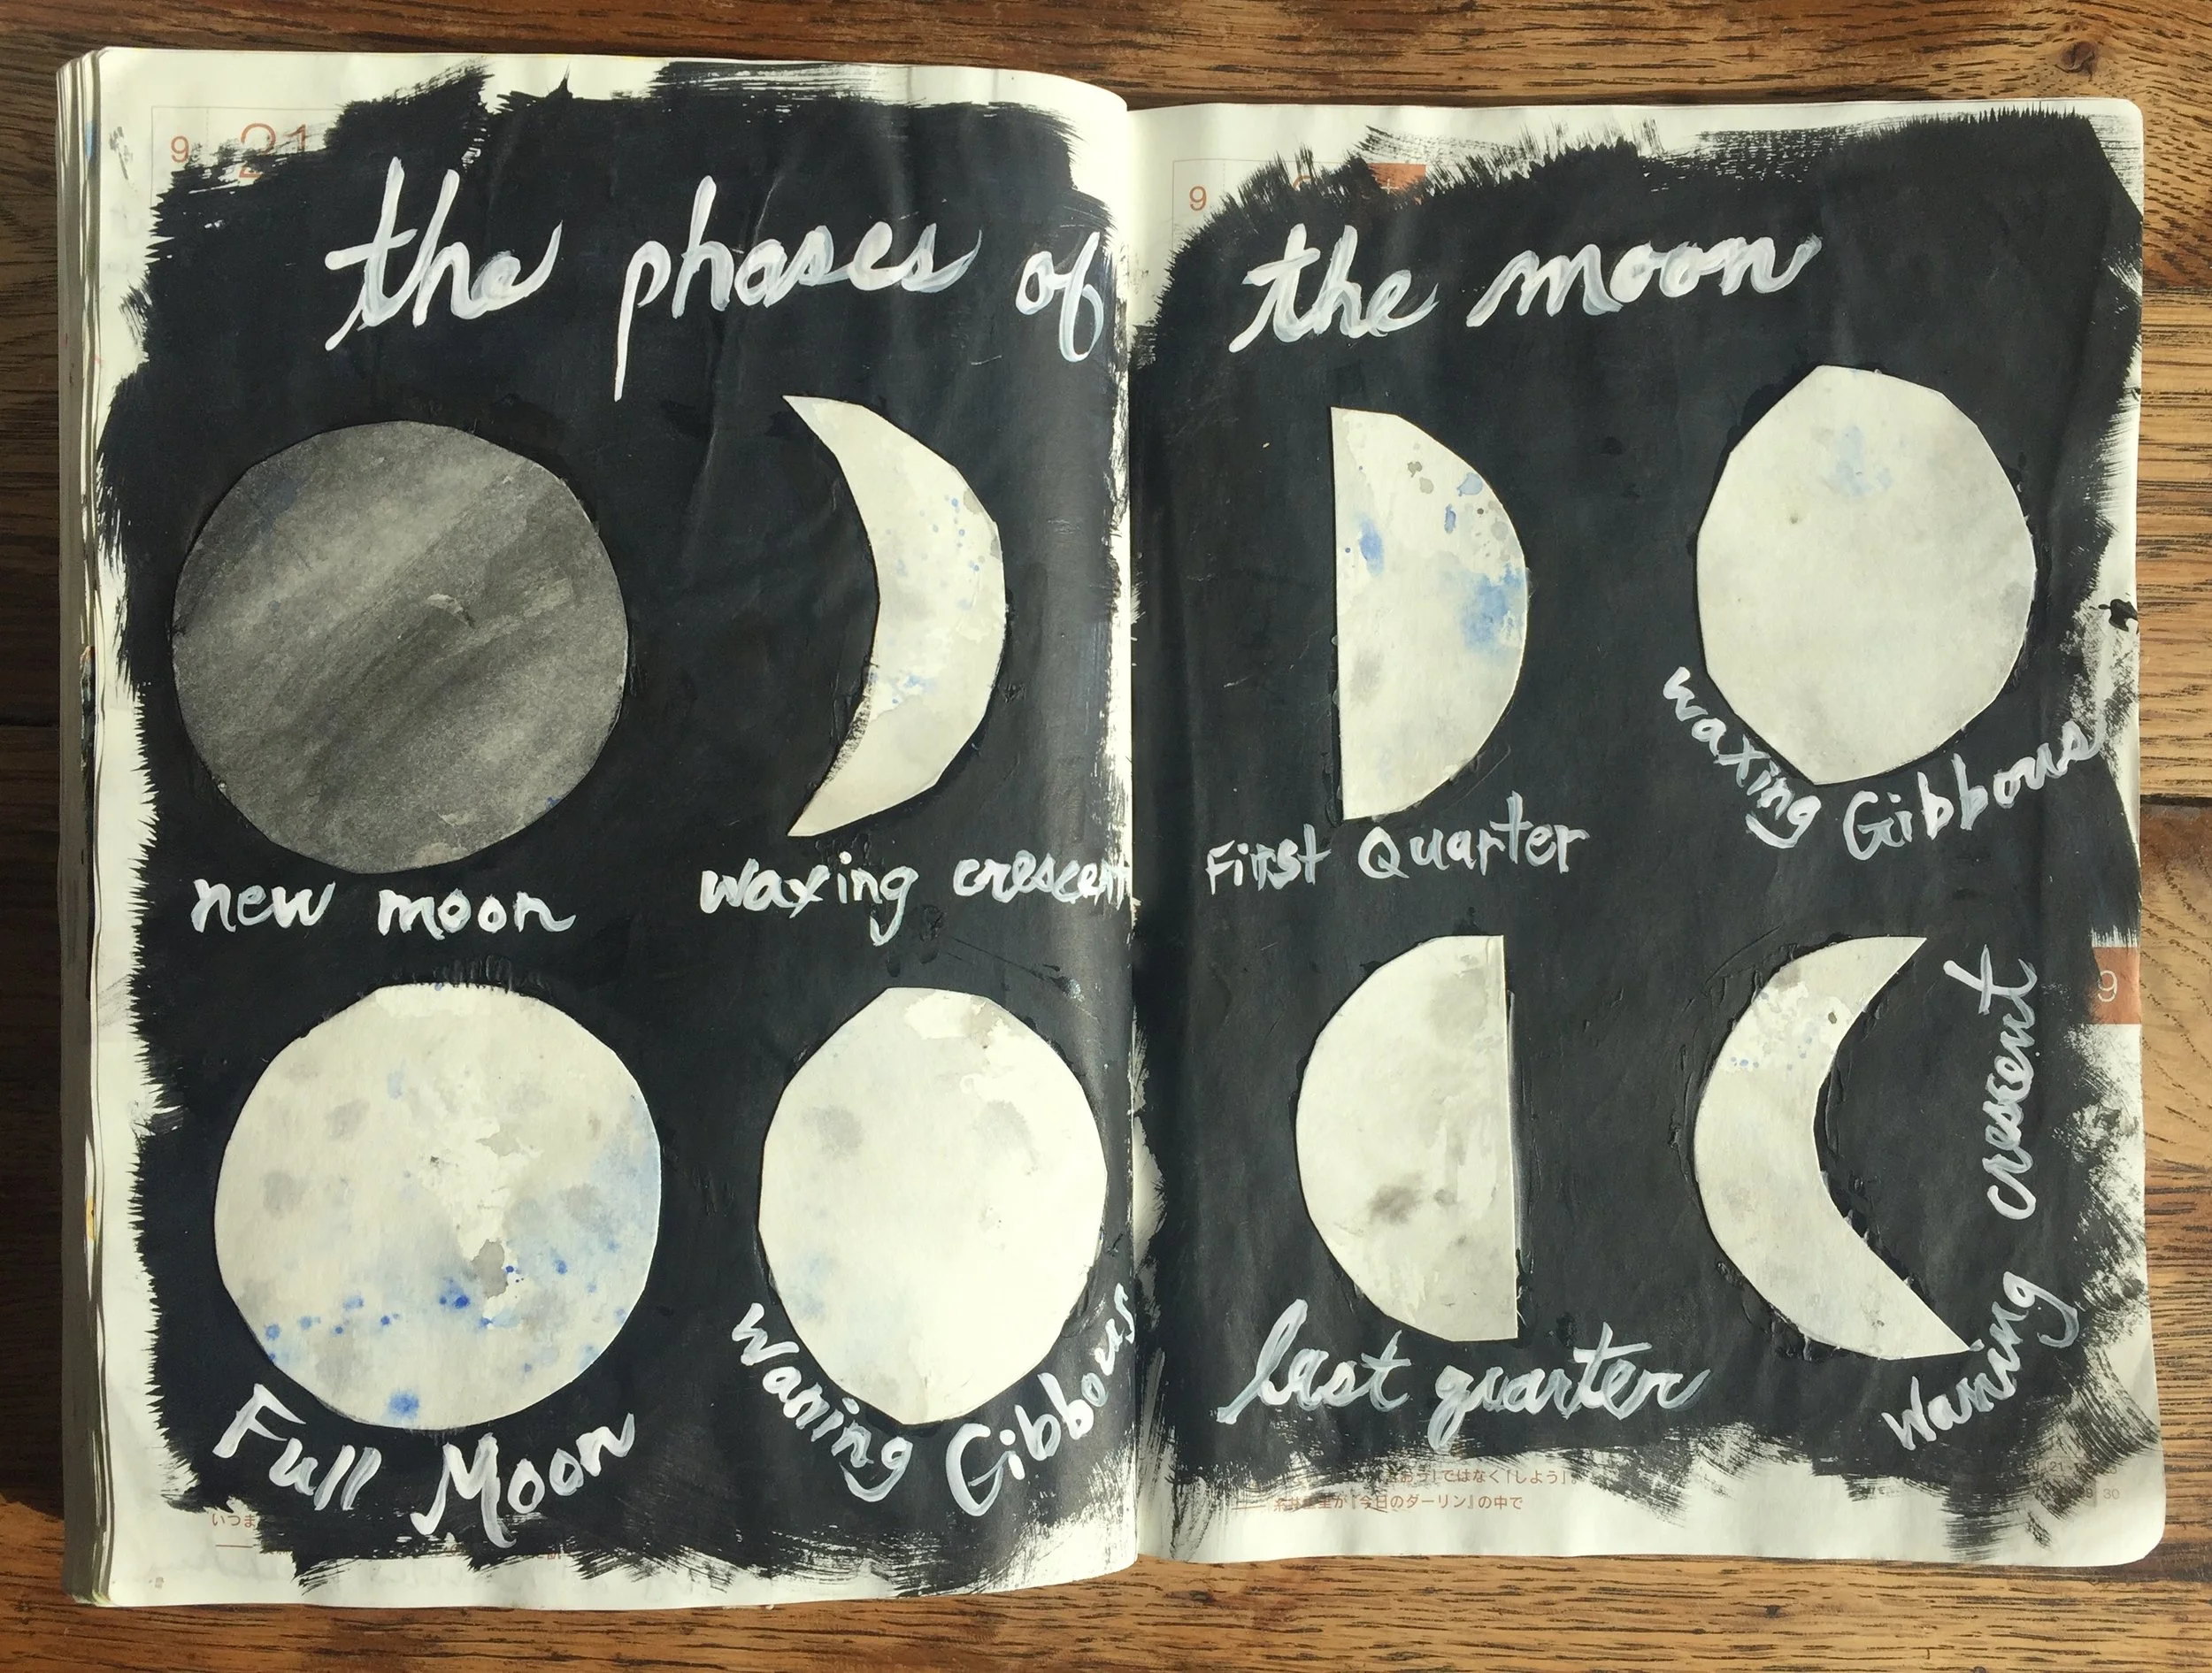 9 21
9
the phases of the moon
new moon
waxing crescent
First Quarter
waxing Gibbous
Full Moon
Waning Gibbous
last quarter
Waning crescent
9
いつま
おう」ではなく「しよう」
が『今日のダーリン』の中で
21
30